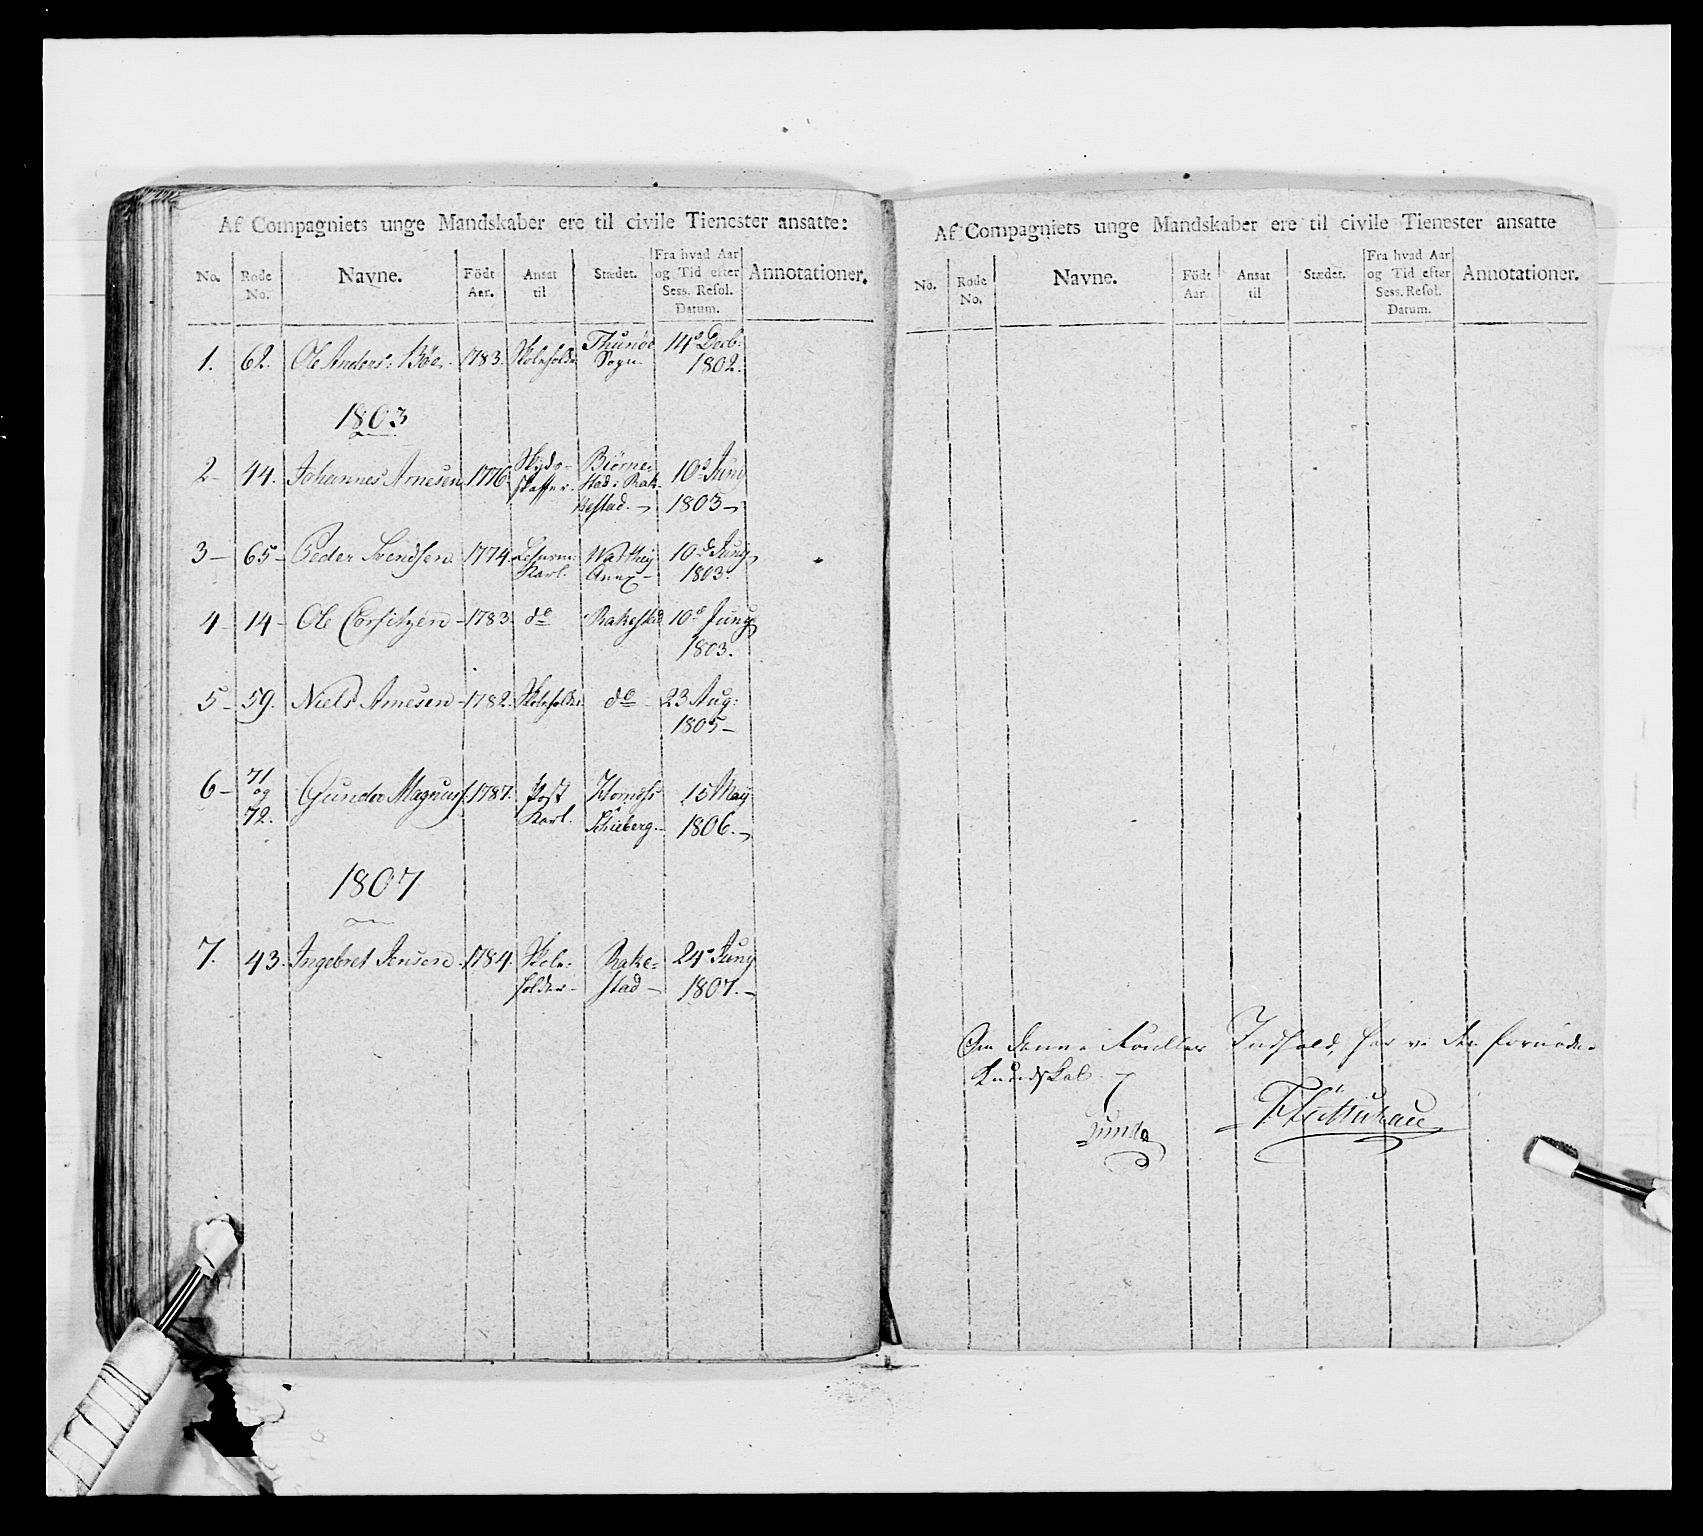 Af Compagniets unge Mandskaber ere til civile Tienester ansatte:
No. Rode No. Navne. Födt Aar. Ansat til Stædet. Fra hvad Aar og Tid efter Sess. Resol. Datum. Annotationer.
1. 62. Ole Anders: Böe. 1783. Skoleholder Thunöe Sogn. 14de Decb: 1802.
1803
2 - 44. Johannes Arnesen 1776. Skyds-skaffer. Biörnestad i Rakkestad. 10de Juny 1803
3 - 65 - Peder Svendsen 1774. Lehnsm: Karl. Anex 10de Juny 1803.
4 - 14 - Ole 1783. do Rakestad 10de Juny 1803.
5 - 59. Niels Arnesen - 1782. Skoleholder do 23 Aug: 1805 -
6 - 71 og 72. Gunder Magnus 1787. Post Karl. 15 May 1806.
1807
7. 43. Ingebret Jensen 1784. Skole-holder - Rake-stad - 24de Juny 1807. -
Af Compagniets unge Mandskaber ere til civile Tienester ansatte
No. Rode No. Navne. Födt Aar. Ansat til Stædet. Fra hvad Aar og Tid efter Sess. Resol. Datum. Annotationer.
Om denne Roulles Indhold, har vi den fornödne
Kundskab